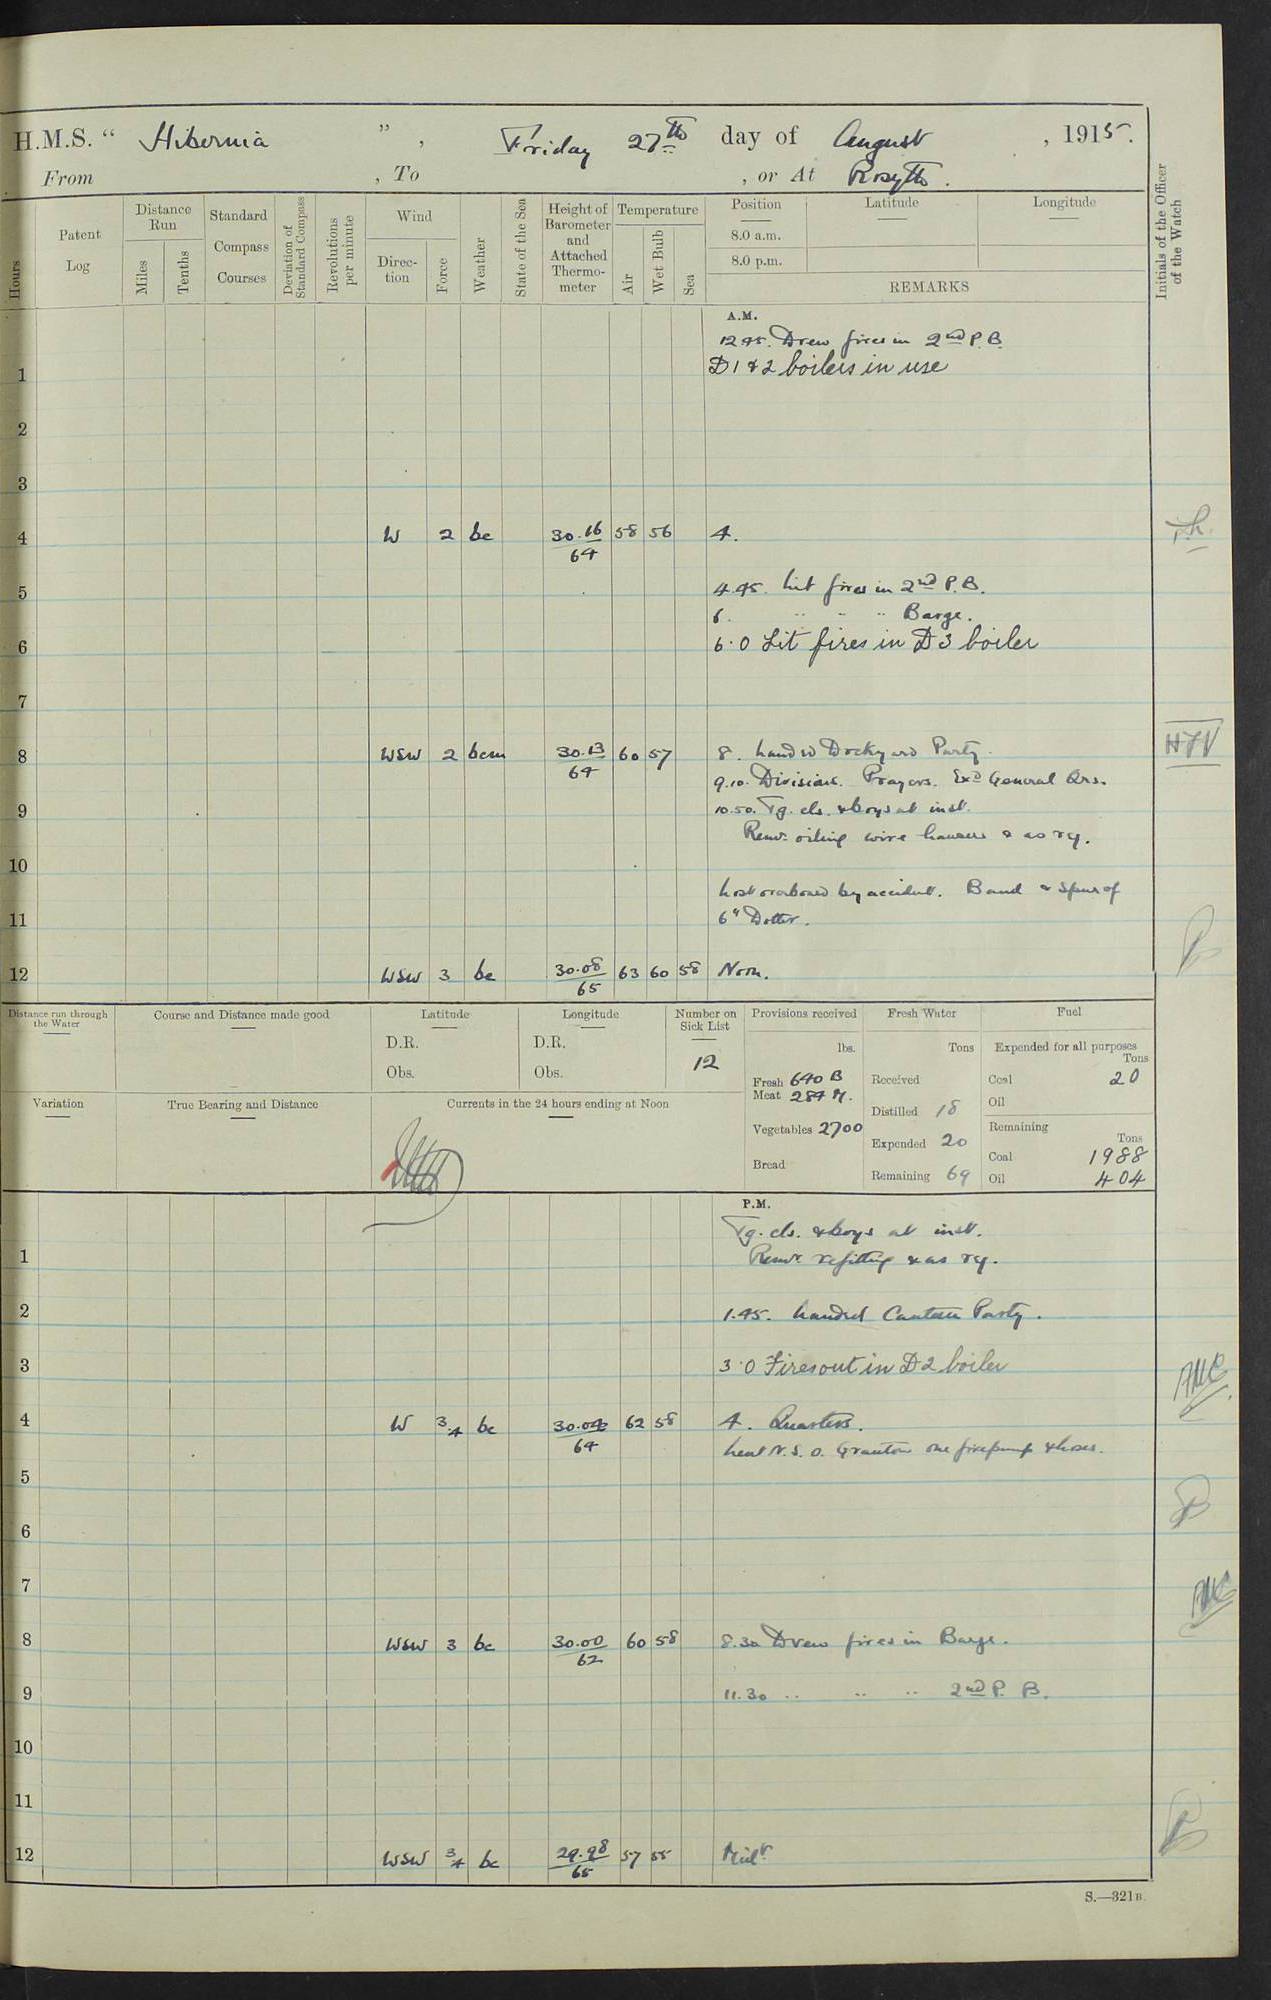 H.M.S. “ Hibernia ”, Friday 27th day of August, 1915.
From , To , or At Rosyth.
Hours
Patent Log
Distance Run
Miles
Tenths
Standard Compass Courses
Deviation of Standard Compass
Revolutions per minute
Wind
Direction
Force
Weather
State of the Sea
Height of Barometer and Attached Thermometer
Temperature
Air
Wet Bulb
Sea
Position
Latitude
Longitude
8.0 a.m.
8.0 p.m.
REMARKS
Initials of the Officer of the Watch
A.M.
12.45. Drew fires in 2nd P.B.
1 D 1 & 2 boilers in use
2
3
4 W 2 bc 30.16/64 58 56 4.
5 4.45. Lit fires in 2nd P.B.
6. " " " Barge.
6 6.0 Lit fires in D 3 boiler
7
8 WSW 2 bcm 30.13/64 60 57 8. Landed Dockyard Party.
9.10. Divisions. Prayers. Exd General Qrs.
9 10.50. Tg. cls. & boys at inst.
Remr oiling wire hawsers & as rq.
10
Lost overboard by accident. Band & Spur of
11 6" Dotter.
12 WSW 3 bc 30.08/65 63 60 58 Noon.
Distance run through the Water
Course and Distance made good
Latitude
D.R.
Obs.
Longitude
D.R.
Obs.
Number on Sick List
12
Provisions received
lbs.
Fresh Meat 640 B
284 M.
Vegetables 2700
Bread
Fresh Water
Tons
Received
Distilled 18
Expended 20
Remaining 69
Fuel
Expended for all purposes
Tons
Coal 20
Oil
Remaining
Tons
Coal 1988
Oil 404
Variation
True Bearing and Distance
Currents in the 24 hours ending at Noon
P.M.
Tg. cls. & boys at inst.
1 Remr refitting & as rq.
2 1.45. Landed Canteen Party.
3 3.0 Fires out in D 2 boiler
4 W 3/4 bc 30.02/64 62 58 4. Quarters.
Lent N.S.O. Granton one firepump & hoses.
5
6
7
8 WSW 3 bc 30.00/62 60 58 8.30 Drew fires in Barge.
9 11.30 " " " 2nd P. B.
10
11
12 WSW 3/4 bc 29.98/65 57 55 Midt
S.—321B.